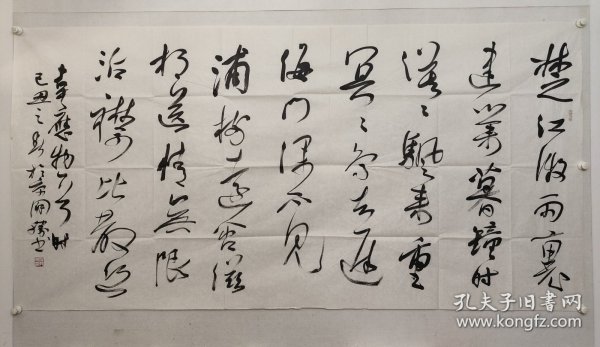 楚江微雨裏
建業暮鐘时
漠漠颿来重
冥冥鸟去遲
海门深不见
浦树遠含滋
相送情無限
沾襟比散丝
韋應物 时
己丑之 於京 书
孔夫子旧书网
www.kongfz.com